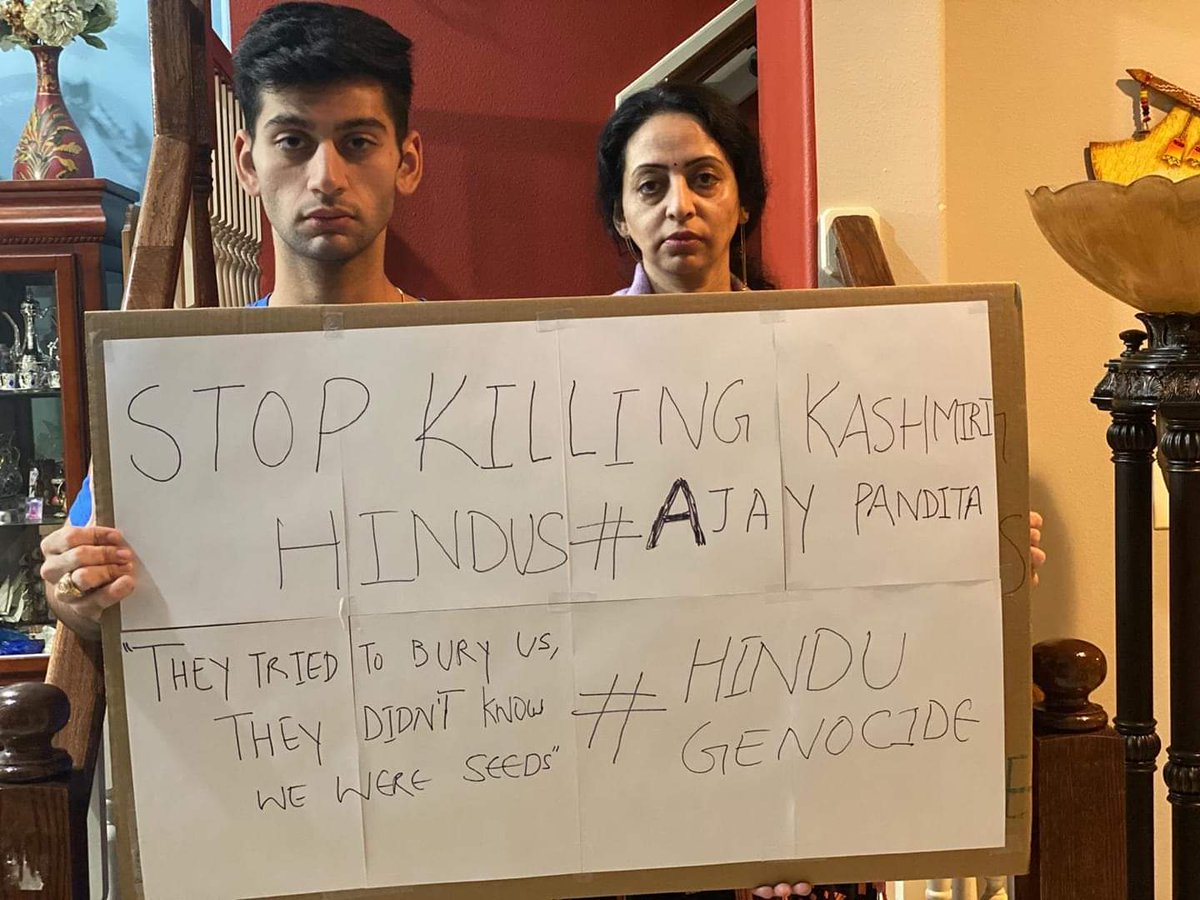 STOP KILLING KASHMIRI
HINDUS # AJAY PANDITA
"THEY TRIED TO BURY US,
THEY DIDN'T KNOW
WE WERE SEEDS"
# HINDU
GENOCIDE